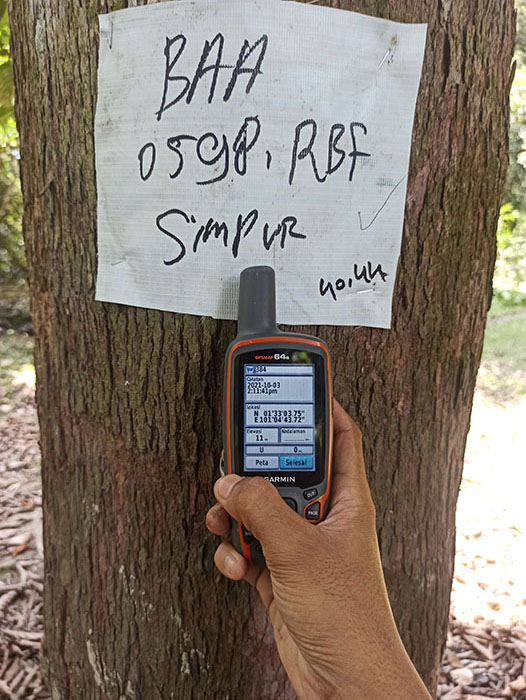 BAA
0598, RBF
SimPUR
40.44
GPSMAP 64s
384
Catatan
2021-10-03
2:11:41pm
Lokasi
N 01°33'03.75"
E101°04'43.72"
Elevasi Kedalaman
11m
U 0m
Peta Selesai
GARMIN
QUIT
PAGE